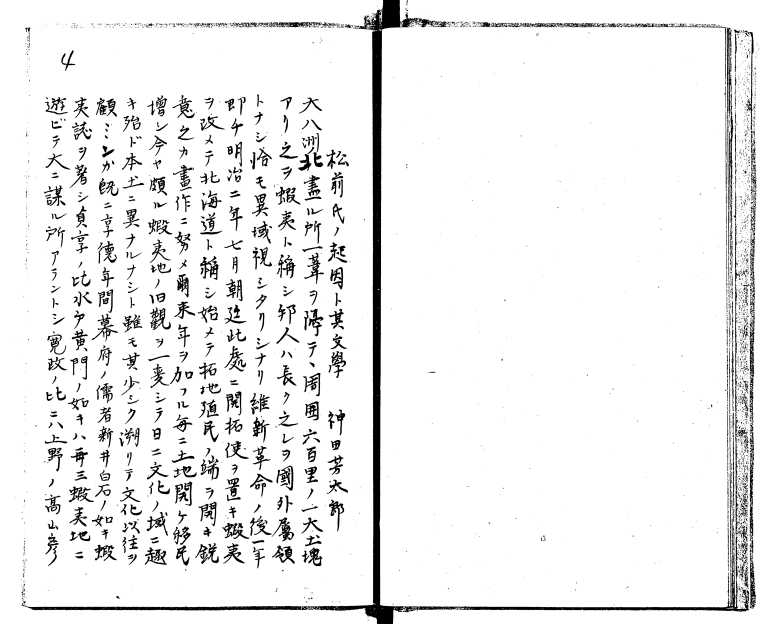 4
松前氏ノ起因ト其文學　神田芳太郎
大八洲北盡ル所一葦ヲ隔テ、周囲六百里ノ一大土塊
アリ之ヲ蝦夷ト稱シ邦人ハ長ク之レヲ國外屬領
トナシ恰モ異域視シタリシナリ維新革命ノ後一年
即チ明治二年七月朝廷此處ニ開拓使ヲ置キ蝦夷
ヲ改メテ北海道ト稱シ始メテ拓地殖民ノ端ヲ開キ鋭
意之カ畫作ニ努メ爾来年ヲ加フル毎ニ土地開ケ移民
増シ今ヤ頗ル蝦夷地ノ旧觀ヲ一変シテ日ニ文化ノ域ニ趣
キ殆ド本土ニ異ナルナシト雖モ其少シク溯リテ文化以往ヲ
顧ミンカ既ニ享德年間幕府ノ儒者新井白石ノ如キ蝦
夷誌ヲ著シ貞享ノ比水戸黄門ノ如キハ再三蝦夷地ニ
遊ビテ大ニ謀ル所アラントシ寛政ノ比ニハ上野ノ高山彦